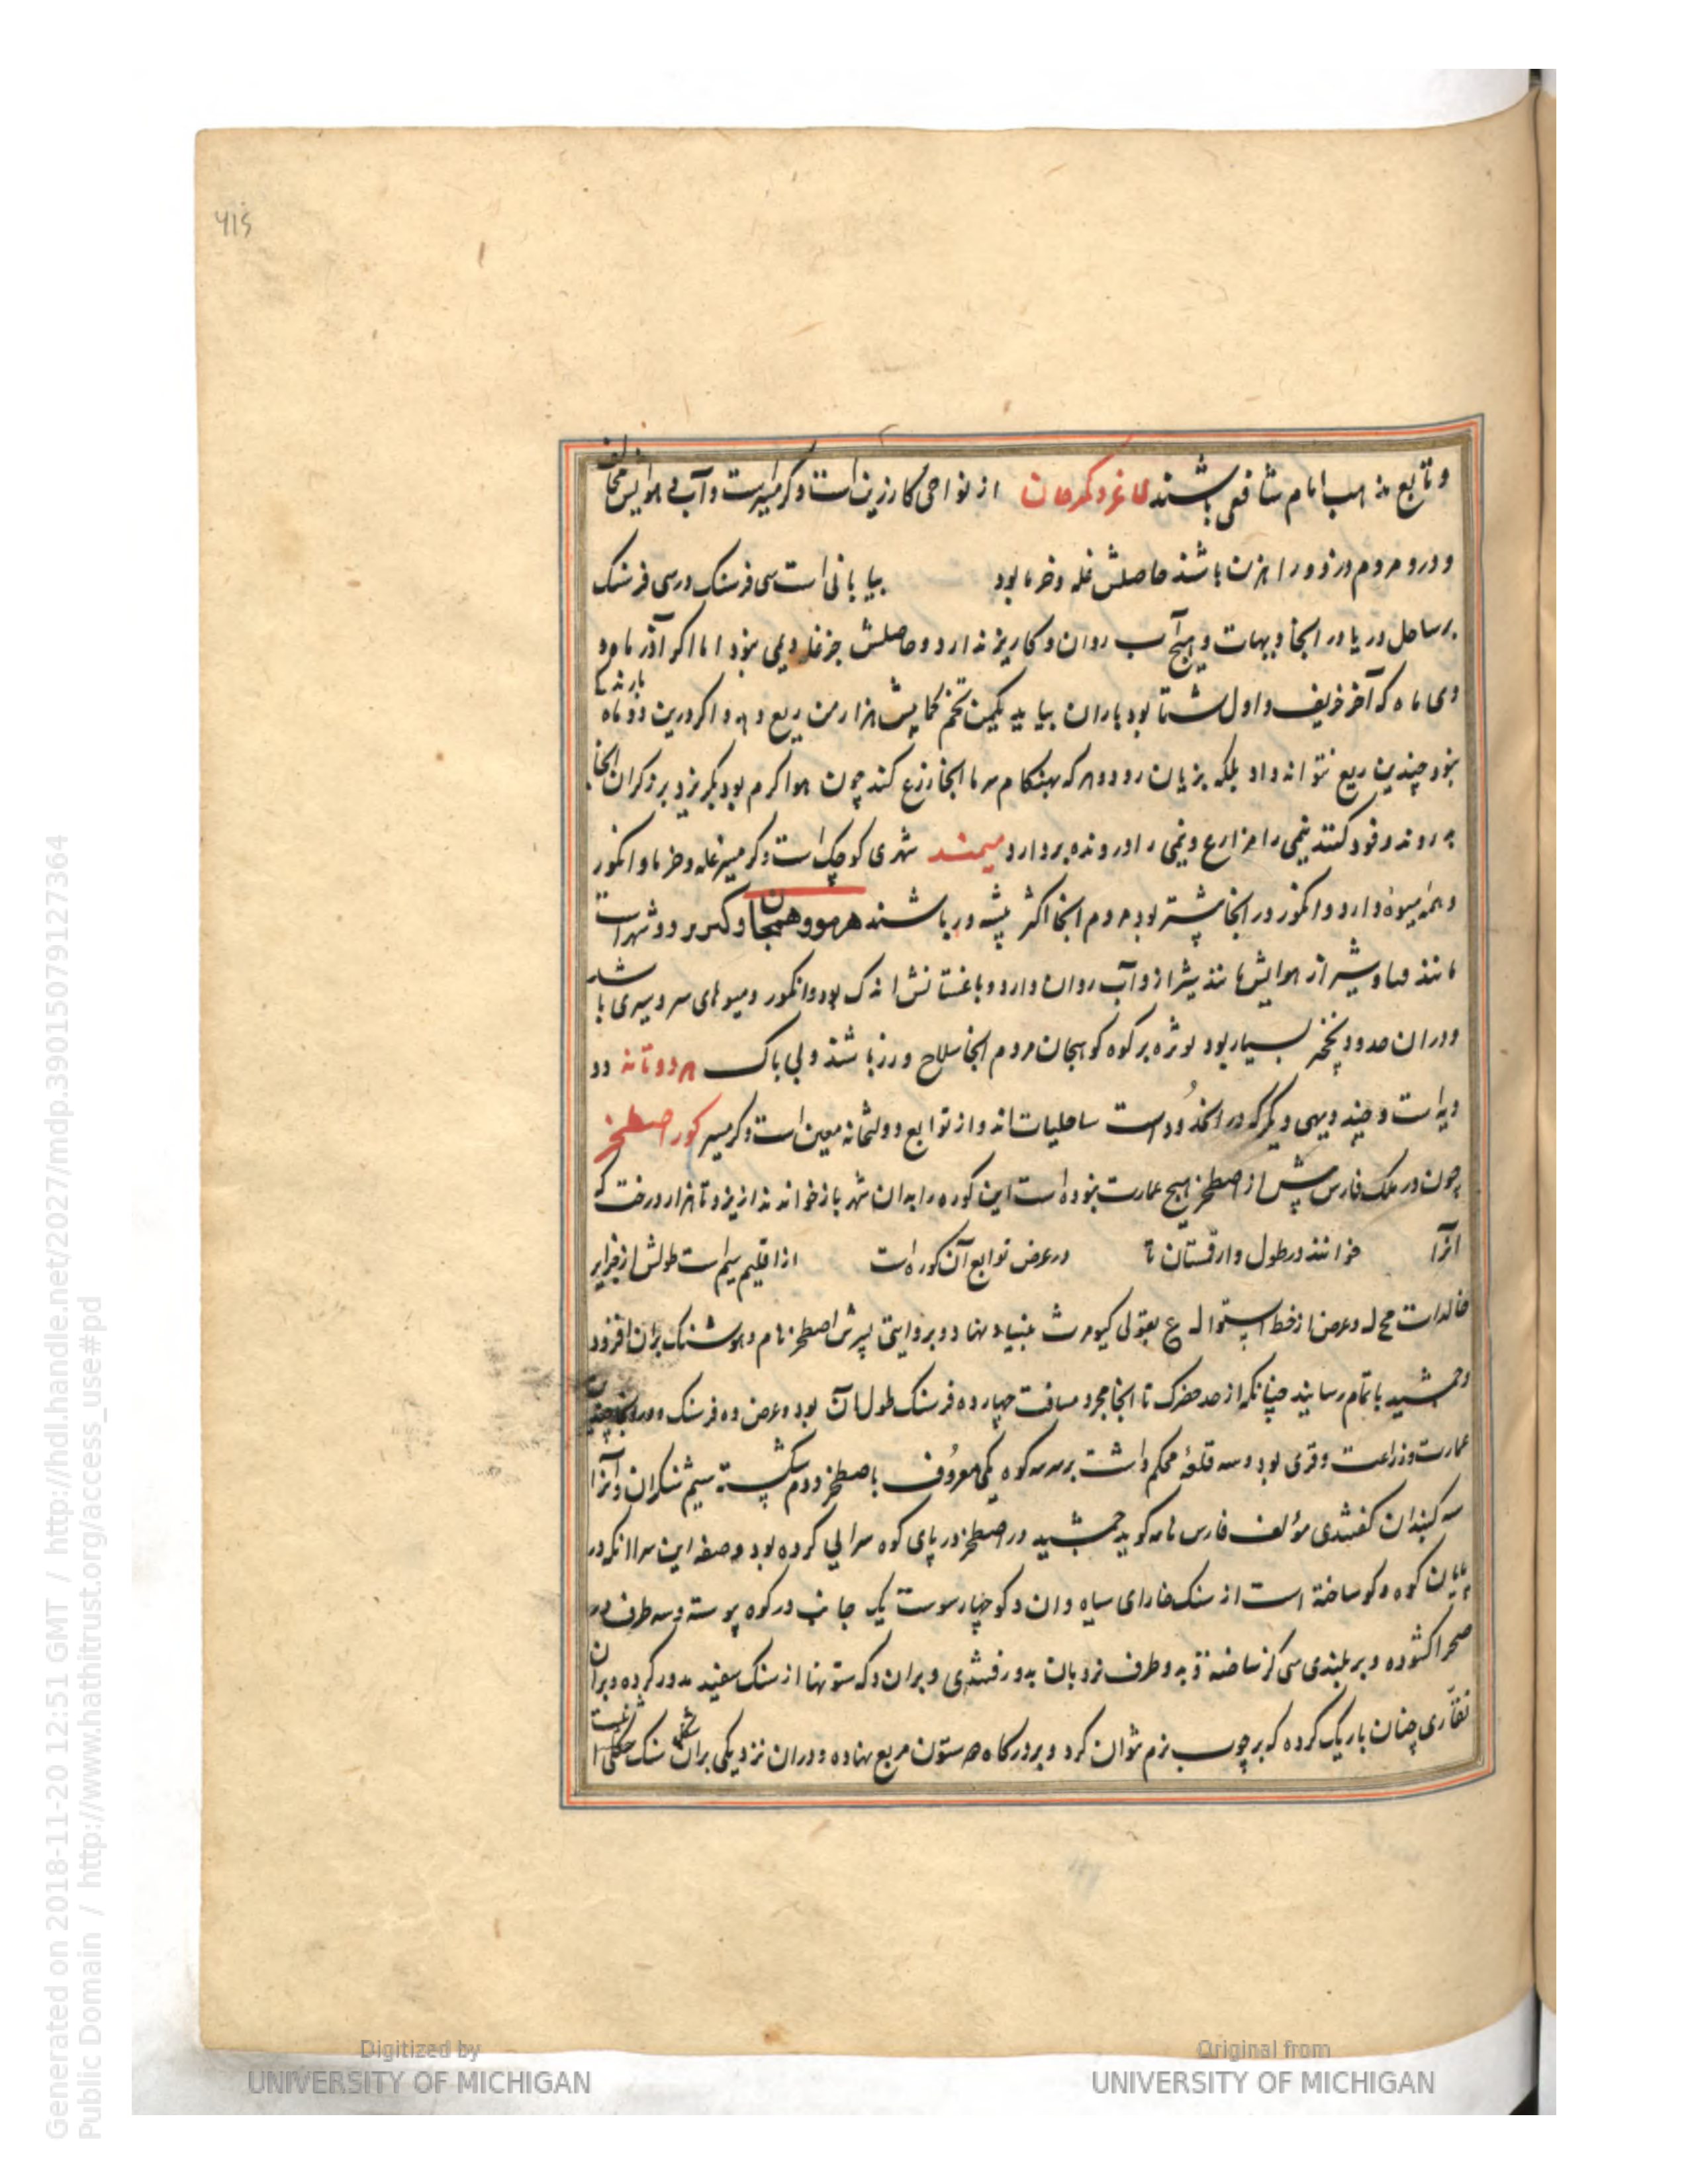 ۴۱۵
و تابع مذهب امام شافعی باشند لاغر و کهرجان از نواحی کارزین است و گرمسیرست و آب و هوایش مخالف
و درو مردم دزد و راهزن باشند حاصلش غله و خرما بود بیابانی است سی فرسنک در سی فرسنک
بر ساحل دریا در انجا دیهات و هیچ آب روان و کاریز ندارد و حاصلش جز غله دیمی نبود اما اکر آذر ماه و
دی ماه که آخر خریف و اول شتا بود باران بیاید یکمن تخم هزار من ریع دهد و اکر درین دو ماه بارند
نبود چندین ریع نتواند داد بلکه بزیان رود و هر که بهنکام سرما انجا زرع کند چون هوا کرم بود بکریزد برزکران انجا
روند و خود کنند نیمی را مزارع و نیمی را درونده بردارد میمند شهری کوچک است و کرمسیر غله و خرما و انکور
و همه میوه دارد و انکور در انجا بیشتر بود مردم انجا اکثر پیشه ور باشند هرمو و همجان و کبرین دو شهر است
مانند میان و شیراز هوایش مانند شیراز و آب روان دارد و باغستانش اندک بود و انکور و میوهای سردسیری باشد
و دران حدود نخجیر بسیار بود بویژه بر کوه کوهیجان مردم انجا سلاح ورز باشند و بی باک هردوتانه دو
دیه است و چند دیهی دیکر که در اخدود است ساحلیات اند و از توابع دولتخانه معین است و کرمسیر کوره اصطخر
چون در ملک فارس پیش از اصطخر هیچ عمارت نبوده است این کوره را بدان شهر باز خوانند از یزد تا هزار درخت که
انرا خوانند در طول و از قهستان تا در عرض توابع آن کوره است از اقلیم سیم است طولش از جزایر
خالدات مح ل و عرض از خط استوا ل ع بقولی کیومرث بنیاد نهاد و بروایتی پسرش اصطخر نام و هوشنک بران افزود
و جمشید باتمام رسانید چنانکه از حد حفرک تا انجا مجرد مسافت چهارده فرسنک طول آن بود و عرض ده فرسنک و در انجا چندان
عمارت و زراعت و قری بود و سه قلعه محکم داشت بر سر سه کوه یکی معروف باصطخر و دوم شکسته سیم شنکران و آنرا
سه کنبدان کفتندی مؤلف فارس نامه کوید جمشید در اصطخر در پای کوه سرایی کرده بود و صفه این سرا انکه در
پایان کوه دکه ساخته است از سنک خارای سیاه و ان دکه چهار سوست یک جانب در کوه پیوسته و سه طرف در
صحرا کشوده و بر بلندی سی کز ساخته و بدو طرف نردبان بدو رفتندی و بران دکه ستونها از سنک سفید مدور کرده و بران
نقاری چنان باریک کرده که بر چوب نرم نتوان کرد و بر درکاه دو ستون مربع نهاده و دران نزدیکی بران شکل سنک
Generated on 2018-11-20 12:51 GMT / http://hdl.handle.net/2027/mdp.39015079127364
Public Domain / http://www.hathitrust.org/access_use#pd
Digitized by
UNIVERSITY OF MICHIGAN
Original from
UNIVERSITY OF MICHIGAN